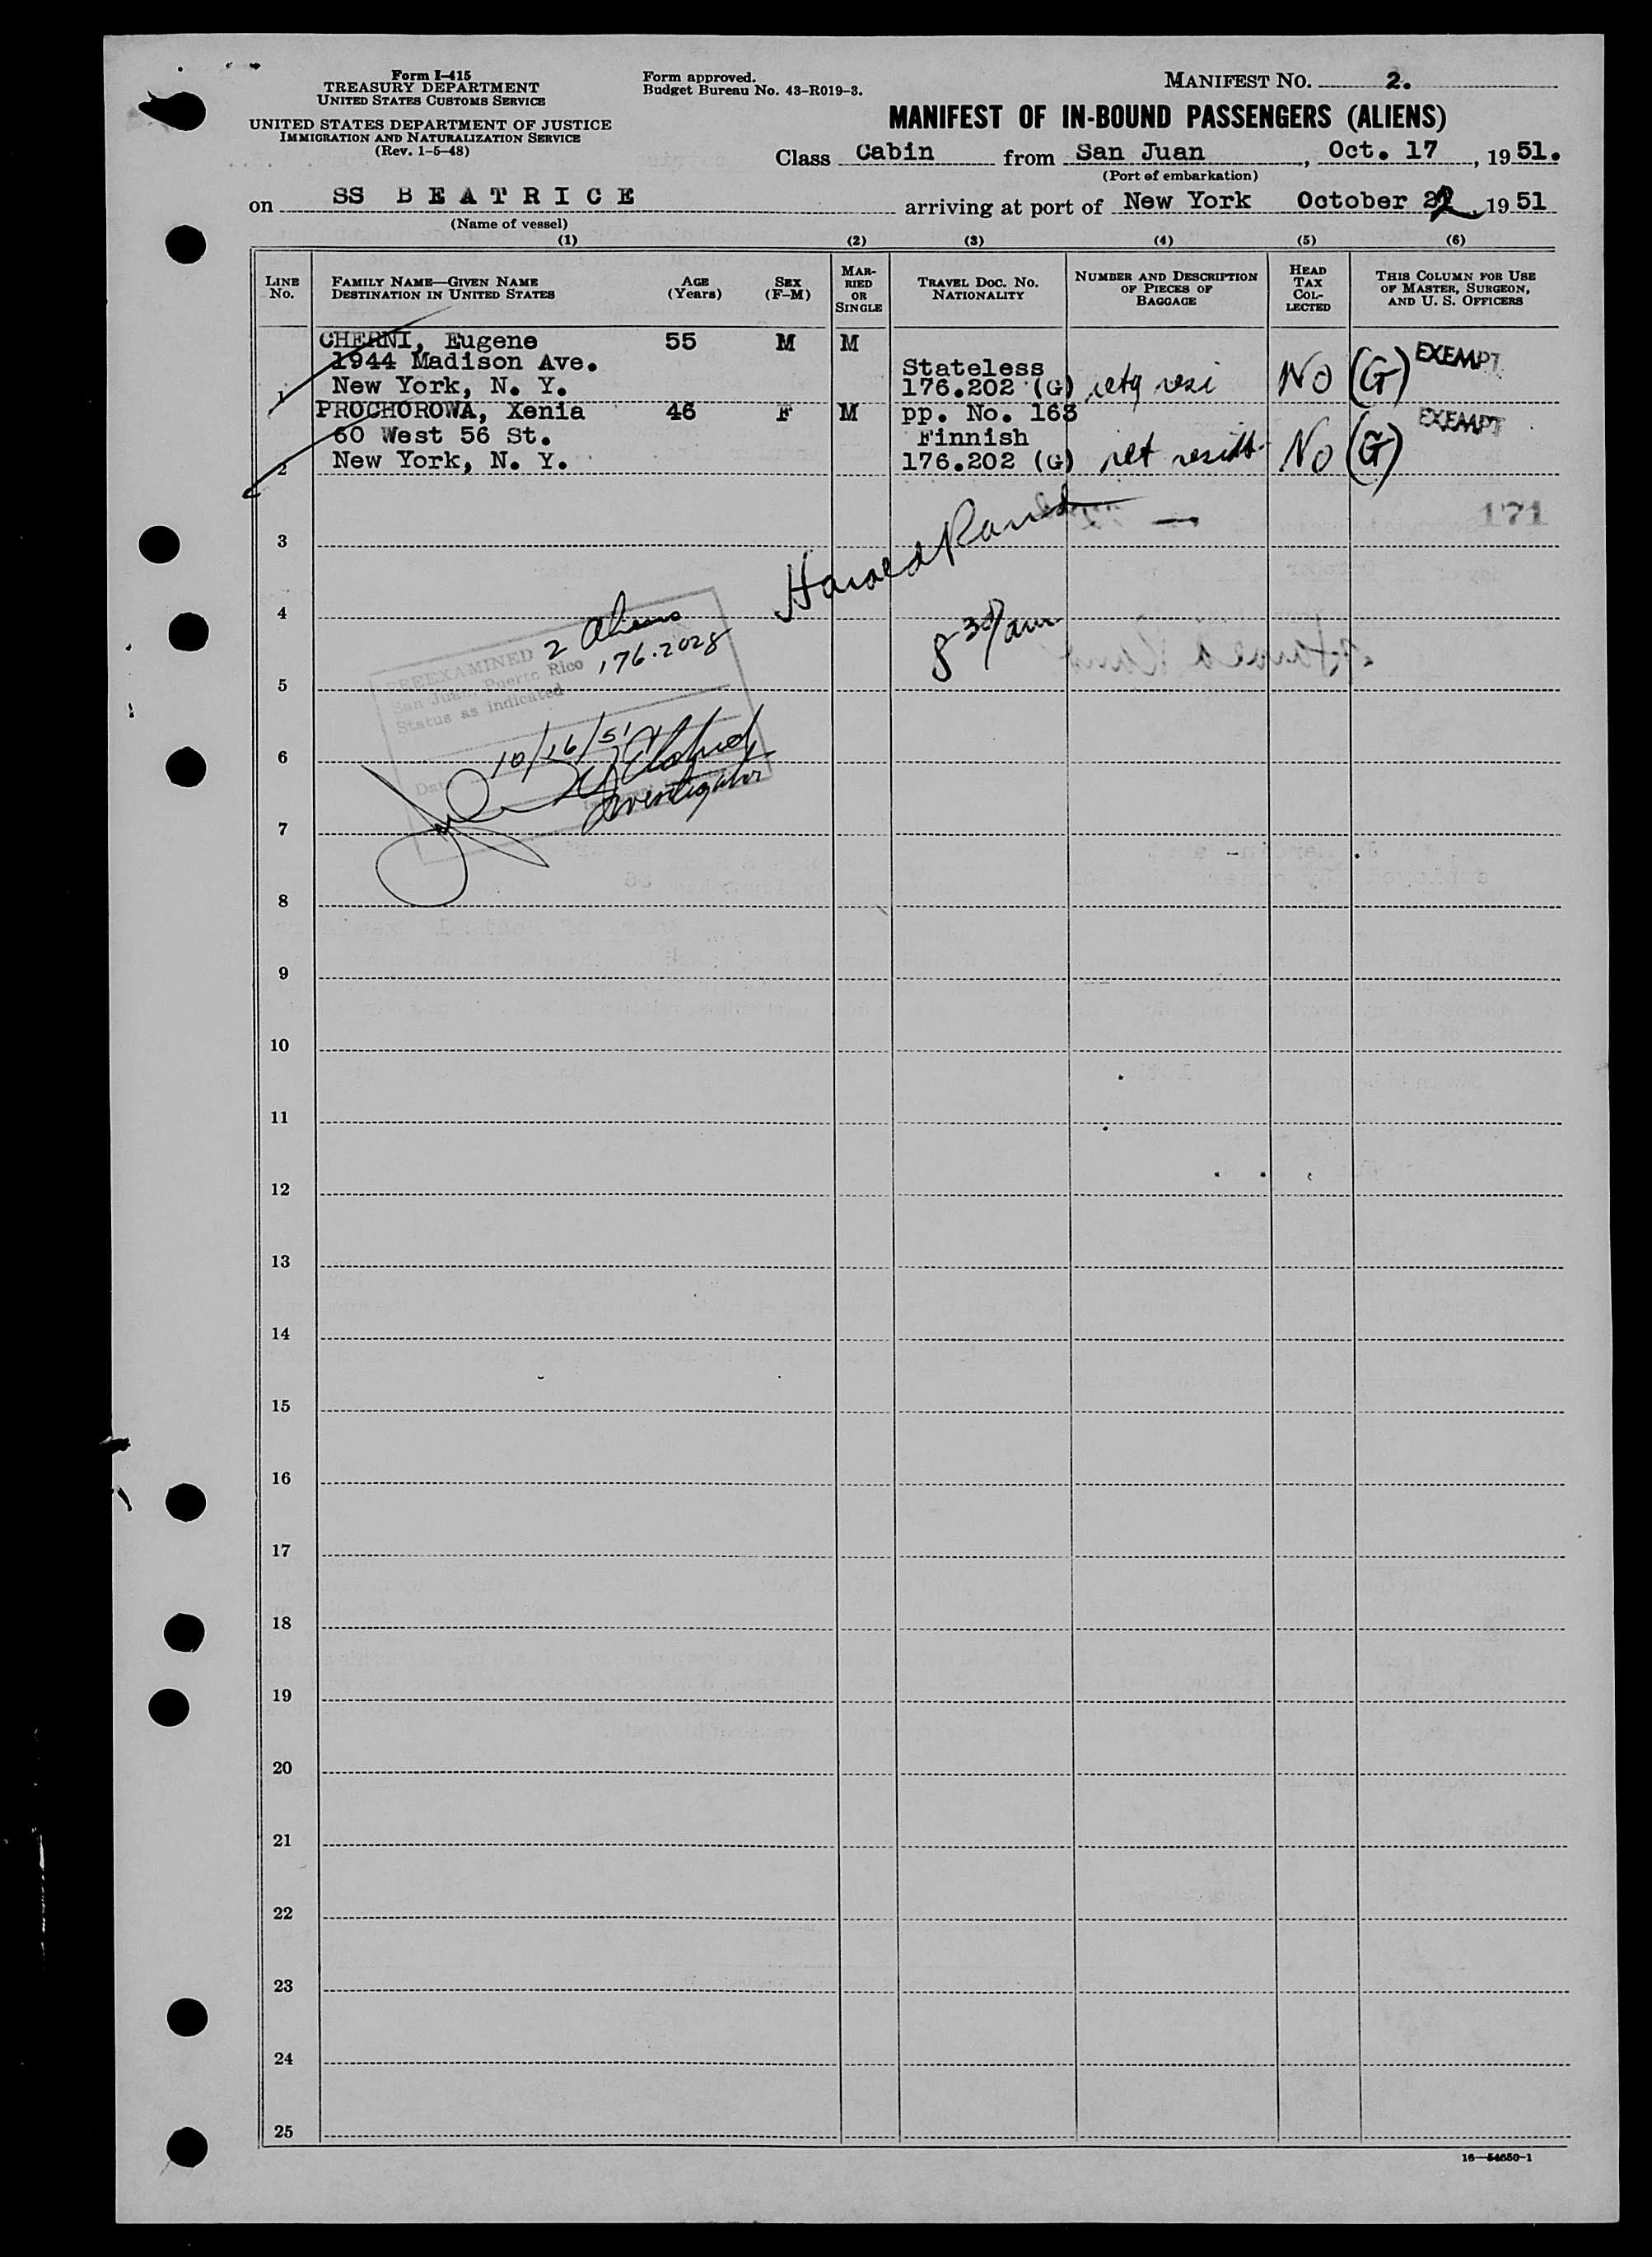 Form I-415
TREASURY DEPARTMENT
UNITED STATES CUSTOMS SERVICE
UNITED STATES DEPARTMENT OF JUSTICE
IMMIGRATION AND NATURALIZATION SERVICE
(Rev. 1-5-48)
Form approved.
Budget Bureau No. 43-R019-3.
MANIFEST NO. 2.
MANIFEST OF IN-BOUND PASSENGERS (ALIENS)
Class Cabin from San Juan, Oct. 17, 1951.
(Port of embarkation)
on SS BEATRICE arriving at port of New York October 22, 1951
(Name of vessel)
(1) (2) (3) (4) (5) (6)
LINE No. FAMILY NAME—GIVEN NAME DESTINATION IN UNITED STATES AGE (Years) SEX (F-M) MARRIED OR SINGLE TRAVEL DOC. NO. NATIONALITY NUMBER AND DESCRIPTION OF PIECES OF BAGGAGE HEAD TAX COLLECTED THIS COLUMN FOR USE OF MASTER, SURGEON, AND U. S. OFFICERS
CHERNI, Eugene 55 M M
1944 Madison Ave. Stateless EXEMPT
1 New York, N. Y. 176.202 (G) No (G)
PROCHOROWA, Xenia 46 F M pp. No. 163 EXEMPT
60 West 56 St. Finnish
2 New York, N. Y. 176.202 (G) No (G)
171
3
Harold Rand
4
8 30/am
2 Aliens
PREEXAMINED
San Juan, Puerto Rico 176.202g
Status as indicated
5
10/16/51
6
Date
Investigator
7
8
9
10
11
12
13
14
15
16
17
18
19
20
21
22
23
24
25
16—54650-1